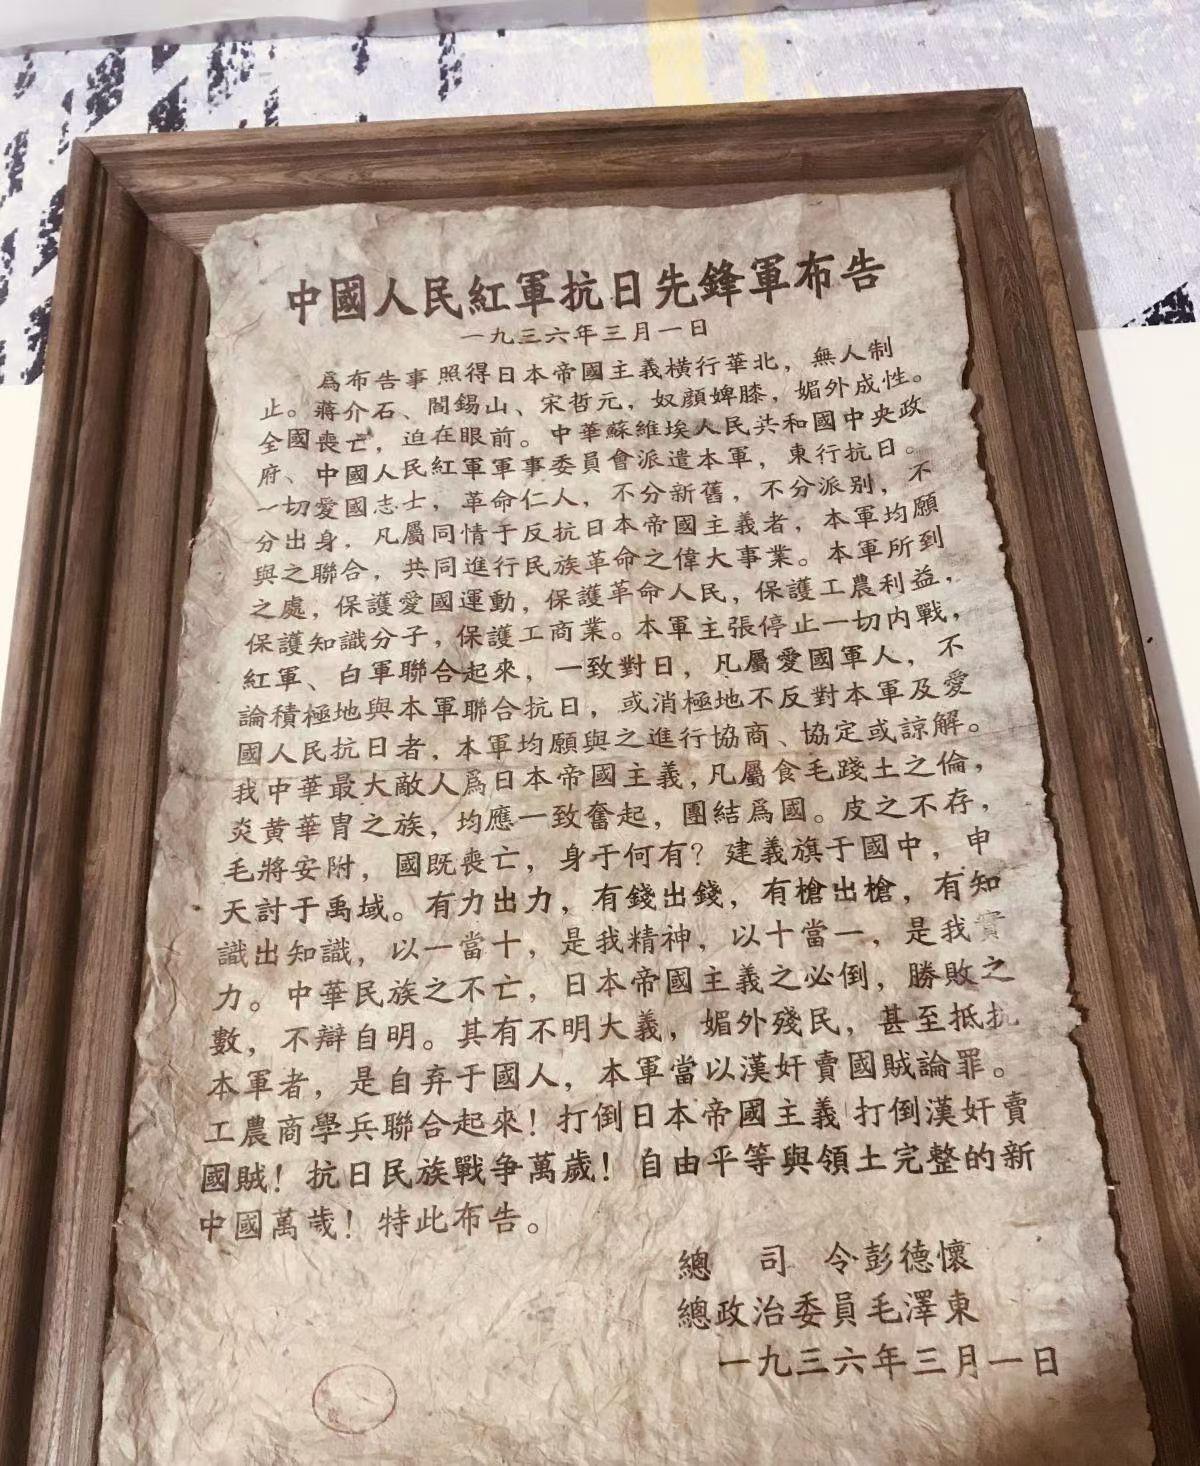 中國人民紅軍抗日先鋒軍布告
一九三六年三月一日
爲布告事 照得日本帝國主義橫行華北，無人制
止。蔣介石、閻錫山、宋哲元，奴顔婢膝，媚外成性。
全國喪亡，迫在眼前。中華蘇維埃人民共和國中央政
府、中國人民紅軍軍事委員會派遣本軍，東行抗日。
一切愛國志士，革命仁人，不分新舊，不分派别，不
分出身，凡屬同情于反抗日本帝國主義者，本軍均願
與之聯合，共同進行民族革命之偉大事業。本軍所到
之處，保護愛國運動，保護革命人民，保護工農利益，
保護知識分子，保護工商業。本軍主張停止一切内戰，
紅軍、白軍聯合起來，一致對日，凡屬愛國軍人，不
論積極地與本軍聯合抗日，或消極地不反對本軍及愛
國人民抗日者，本軍均願與之進行協商、協定或諒解。
我中華最大敵人爲日本帝國主義，凡屬食毛踐土之倫，
炎黄華胄之族，均應一致奮起，團結爲國。皮之不存，
毛將安附，國既喪亡，身于何有？建義旗于國中，申
天討于禹域。有力出力，有錢出錢，有槍出槍，有知
識出知識，以一當十，是我精神，以十當一，是我實
力。中華民族之不亡，日本帝國主義之必倒，勝敗之
數，不辯自明。其有不明大義，媚外殘民，甚至抵抗
本軍者，是自弃于國人，本軍當以漢奸賣國賊論罪。
工農商學兵聯合起來！打倒日本帝國主義 打倒漢奸賣
國賊！抗日民族戰争萬歲！自由平等與領土完整的新
中國萬歲！特此布告。
總 司 令彭德懷
總政治委員毛澤東
一九三六年三月一日